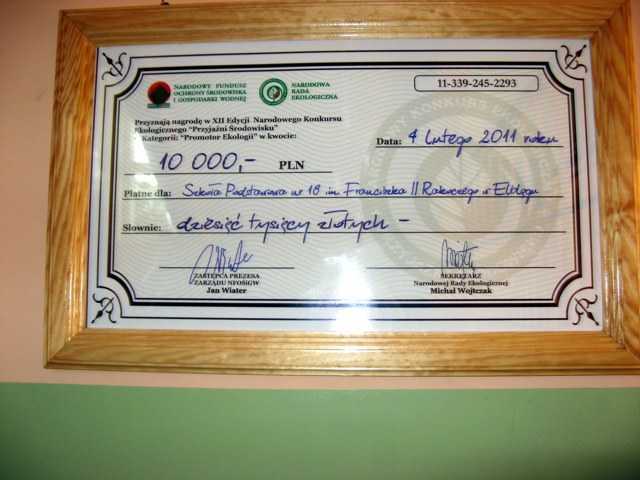 NARODOWY FUNDUSZ
OCHRONY ŚRODOWISKA
I GOSPODARKI WODNEJ
NARODOWA
RADA
EKOLOGICZNA
11-339-245-2293
Przyznają nagrodę w XII Edycji Narodowego Konkursu
Ekologicznego "Przyjaźni Środowisku"
w Kategorii: "Promotor Ekologii" w kwocie:
Data: 4 Lutego 2011 roku
10 000,- PLN
Płatne dla: Szkoła Podstawowa nr 18 im. Franciszka II Rakoczego w Elblągu
Słownie: dziesięć tysięcy złotych -
ZASTĘPCA PREZESA
ZARZĄDU NFOŚiGW
Jan Wiater
SEKRETARZ
Narodowej Rady Ekologicznej
Michał Wojtczak